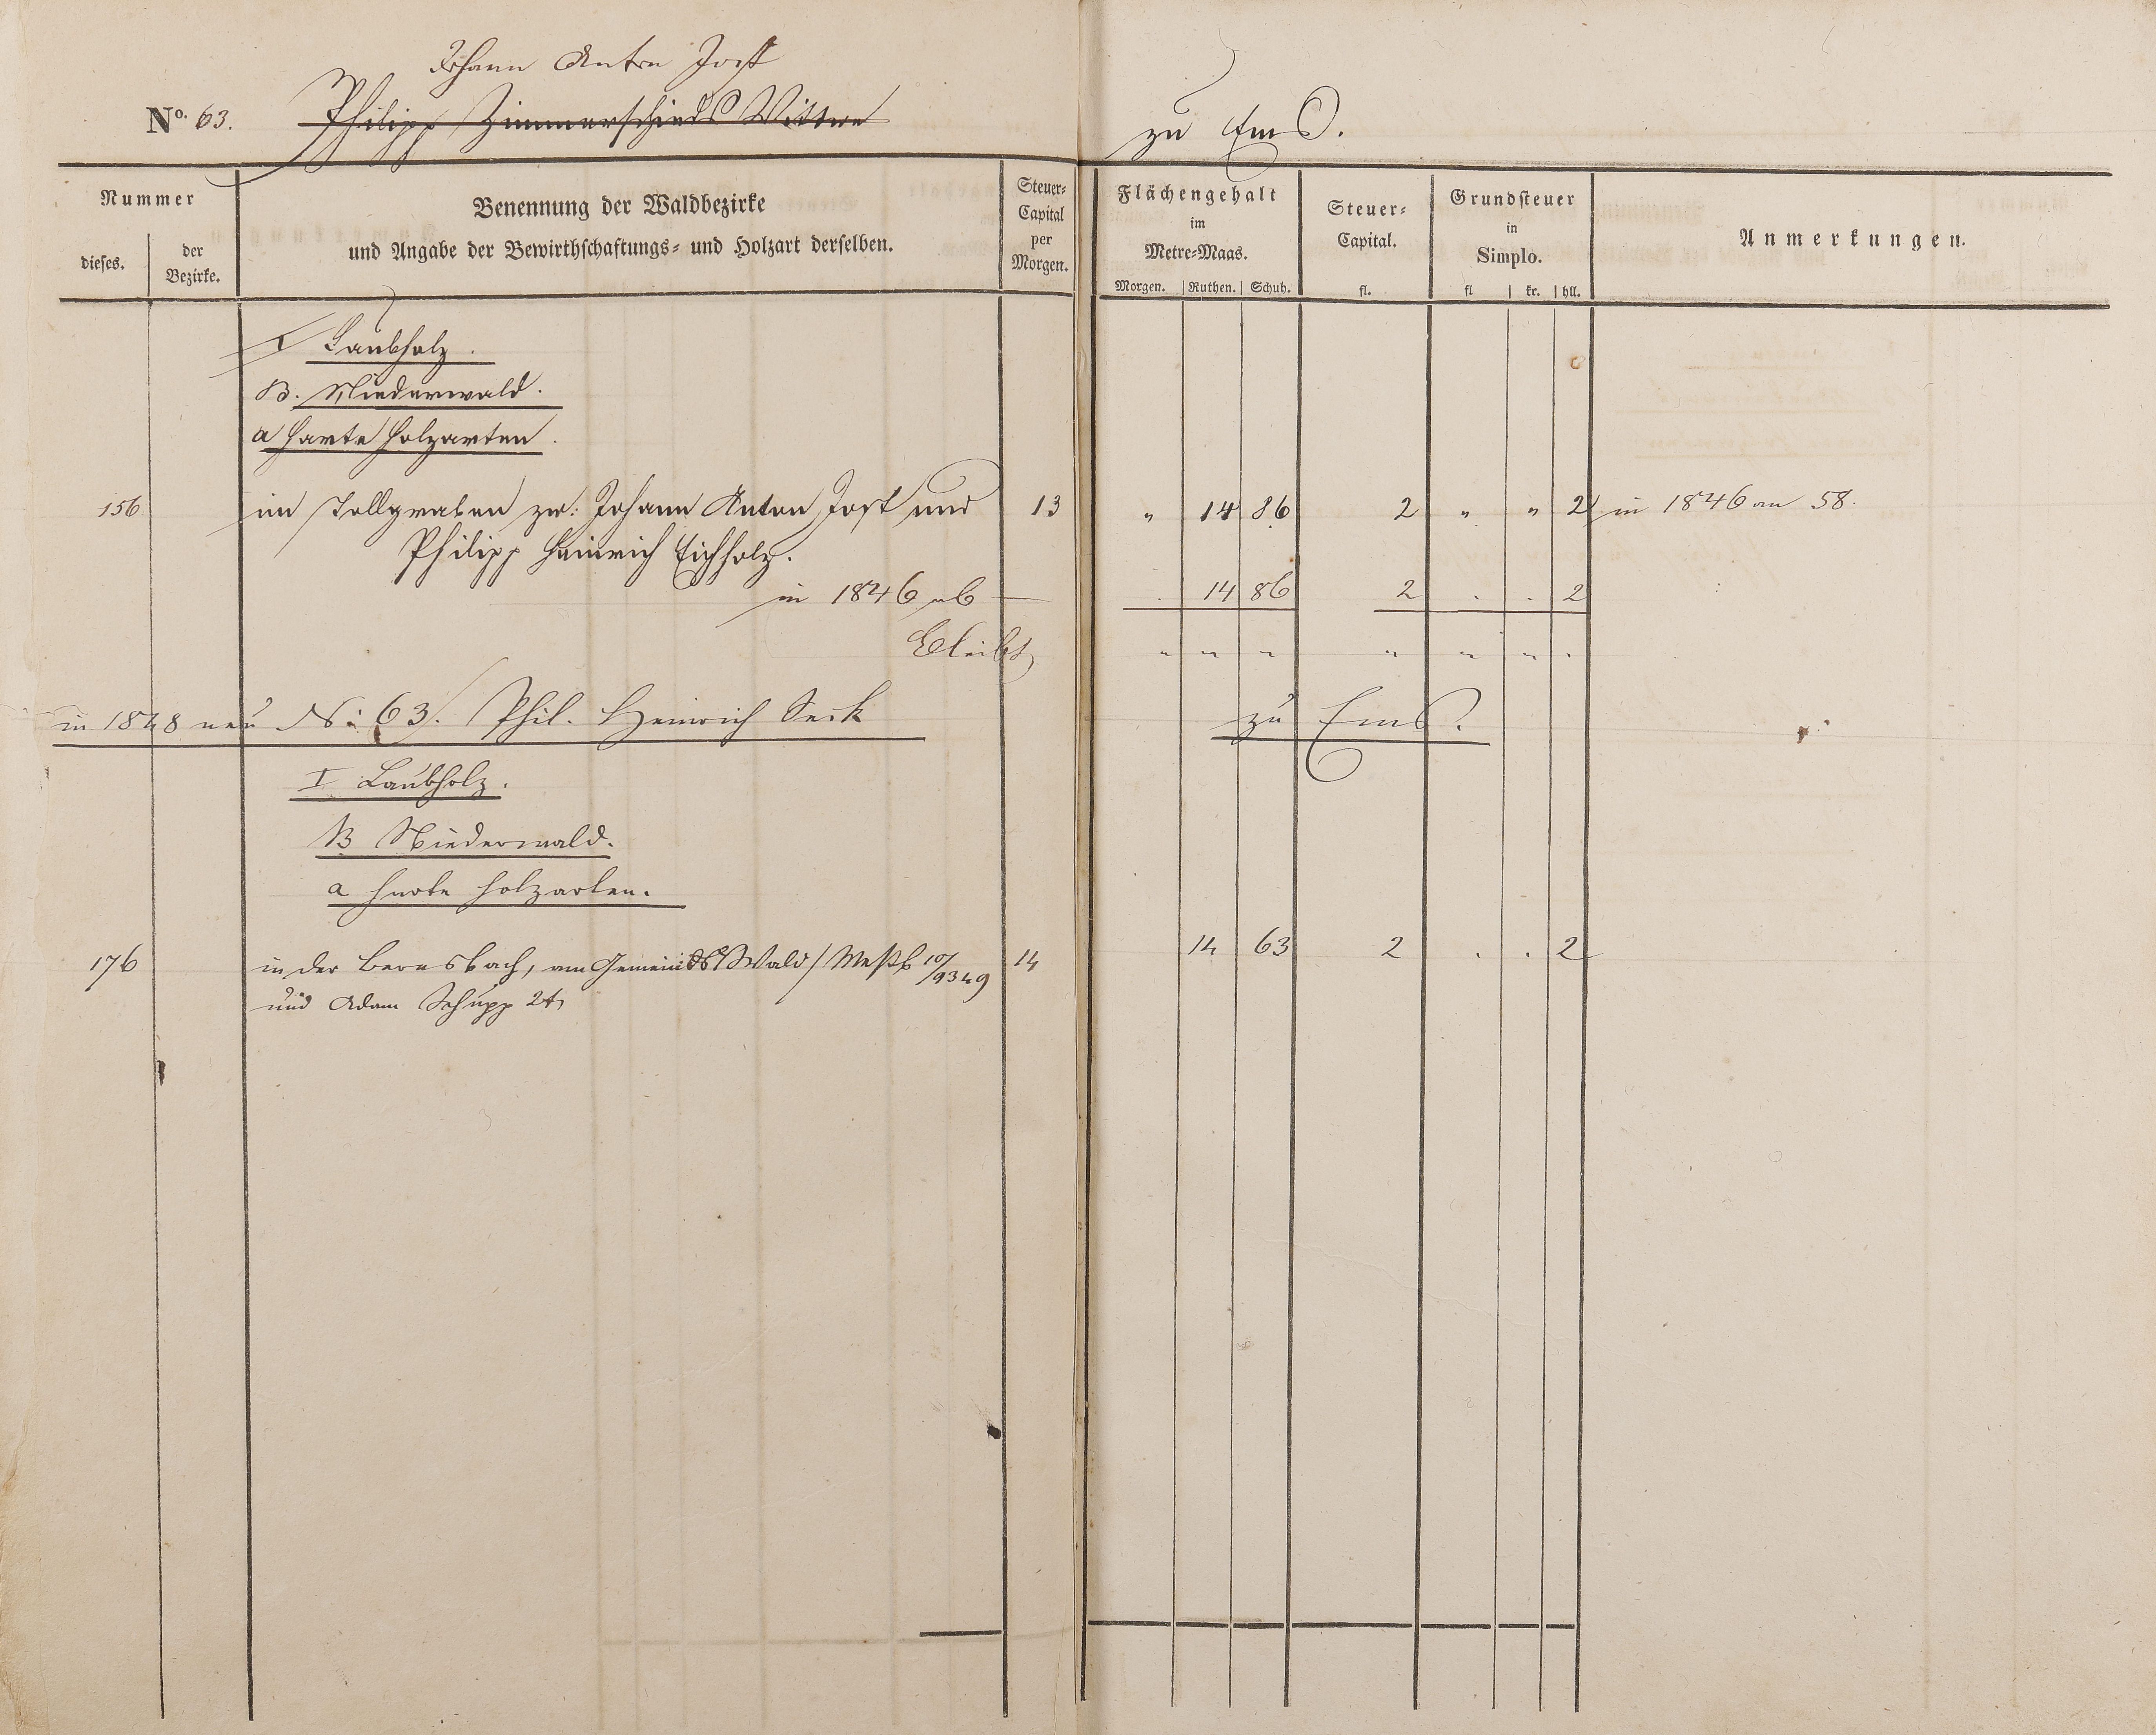 Johann Anton Jost
No. 63. Philipp Zimmerschieds Wittwe zu Ems.
Nummer
dieses. der Bezirke.
Benennung der Waldbezirke
und Angabe der Bewirthschaftungs- und Holzart derselben.
Steuer-Capital per Morgen.
Flächengehalt
im
Metre-Maas.
Morgen. Ruthen. Schuh.
Steuer-Capital.
fl.
Grundsteuer
in
Simplo.
fl kr. hll.
Anmerkungen.
I Laubholz.
B. Niederwald.
a harte Holzarten.
156 im Tollgraben zw. Johann Anton Jost und 13 " 14 86 2 " " 2 in 1846 an 58.
Philipp Heinrich Eichholz.
in 1846 ab — . 14 86 2 . . 2
bleibt " " " " " " "
in 1848 neu No 63. Phil. Heinrich Seck zu Ems.
I Laubholz.
B Niederwald.
a harte Holzarten.
176 in der Bernsbach, am Gemeinde Wald 9349 14 14 63 2 . . 2
und Adam Schupp 2t